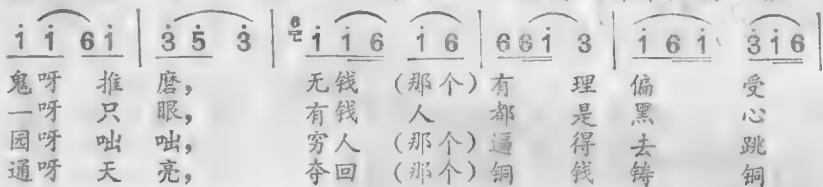 i i 6 i | 3 5 3 | 6 i i 6 i 6 | 6 6 i 3 | i 6 i 3 i 6
鬼呀 推 磨， 无钱 (那个) 有 理 偏 受
一呀 只 眼， 有钱 人 都 是 黑 心
园呀 咄 咄， 穷人 (那个) 逼 得 去 跳
通呀 天 亮， 夺回 (那个) 铜 钱 铸 铜